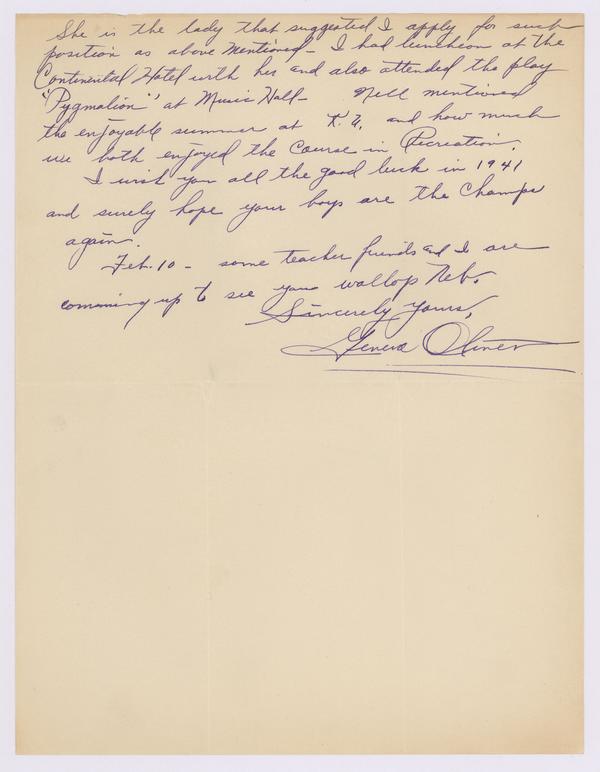 She is the lady that suggested I apply for such
position as above mentioned - I had luncheon at the
Continental Hotel with her and also attended the play
"Pygmalion" at Music Hall - Nell mentioned
the enjoyable summer at K.U. and how much
we both enjoyed the Course in Recreation.
I wish you all the good luck in 1941
and surely hope your boys are the Champs
again.
Feb. 10 - some teacher friends and I are
comming up to see you wallop Neb.
Sincerely Yours,
Geneva Oliver